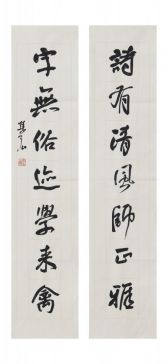 詩有清風師正雅
字無俗迹學來禽